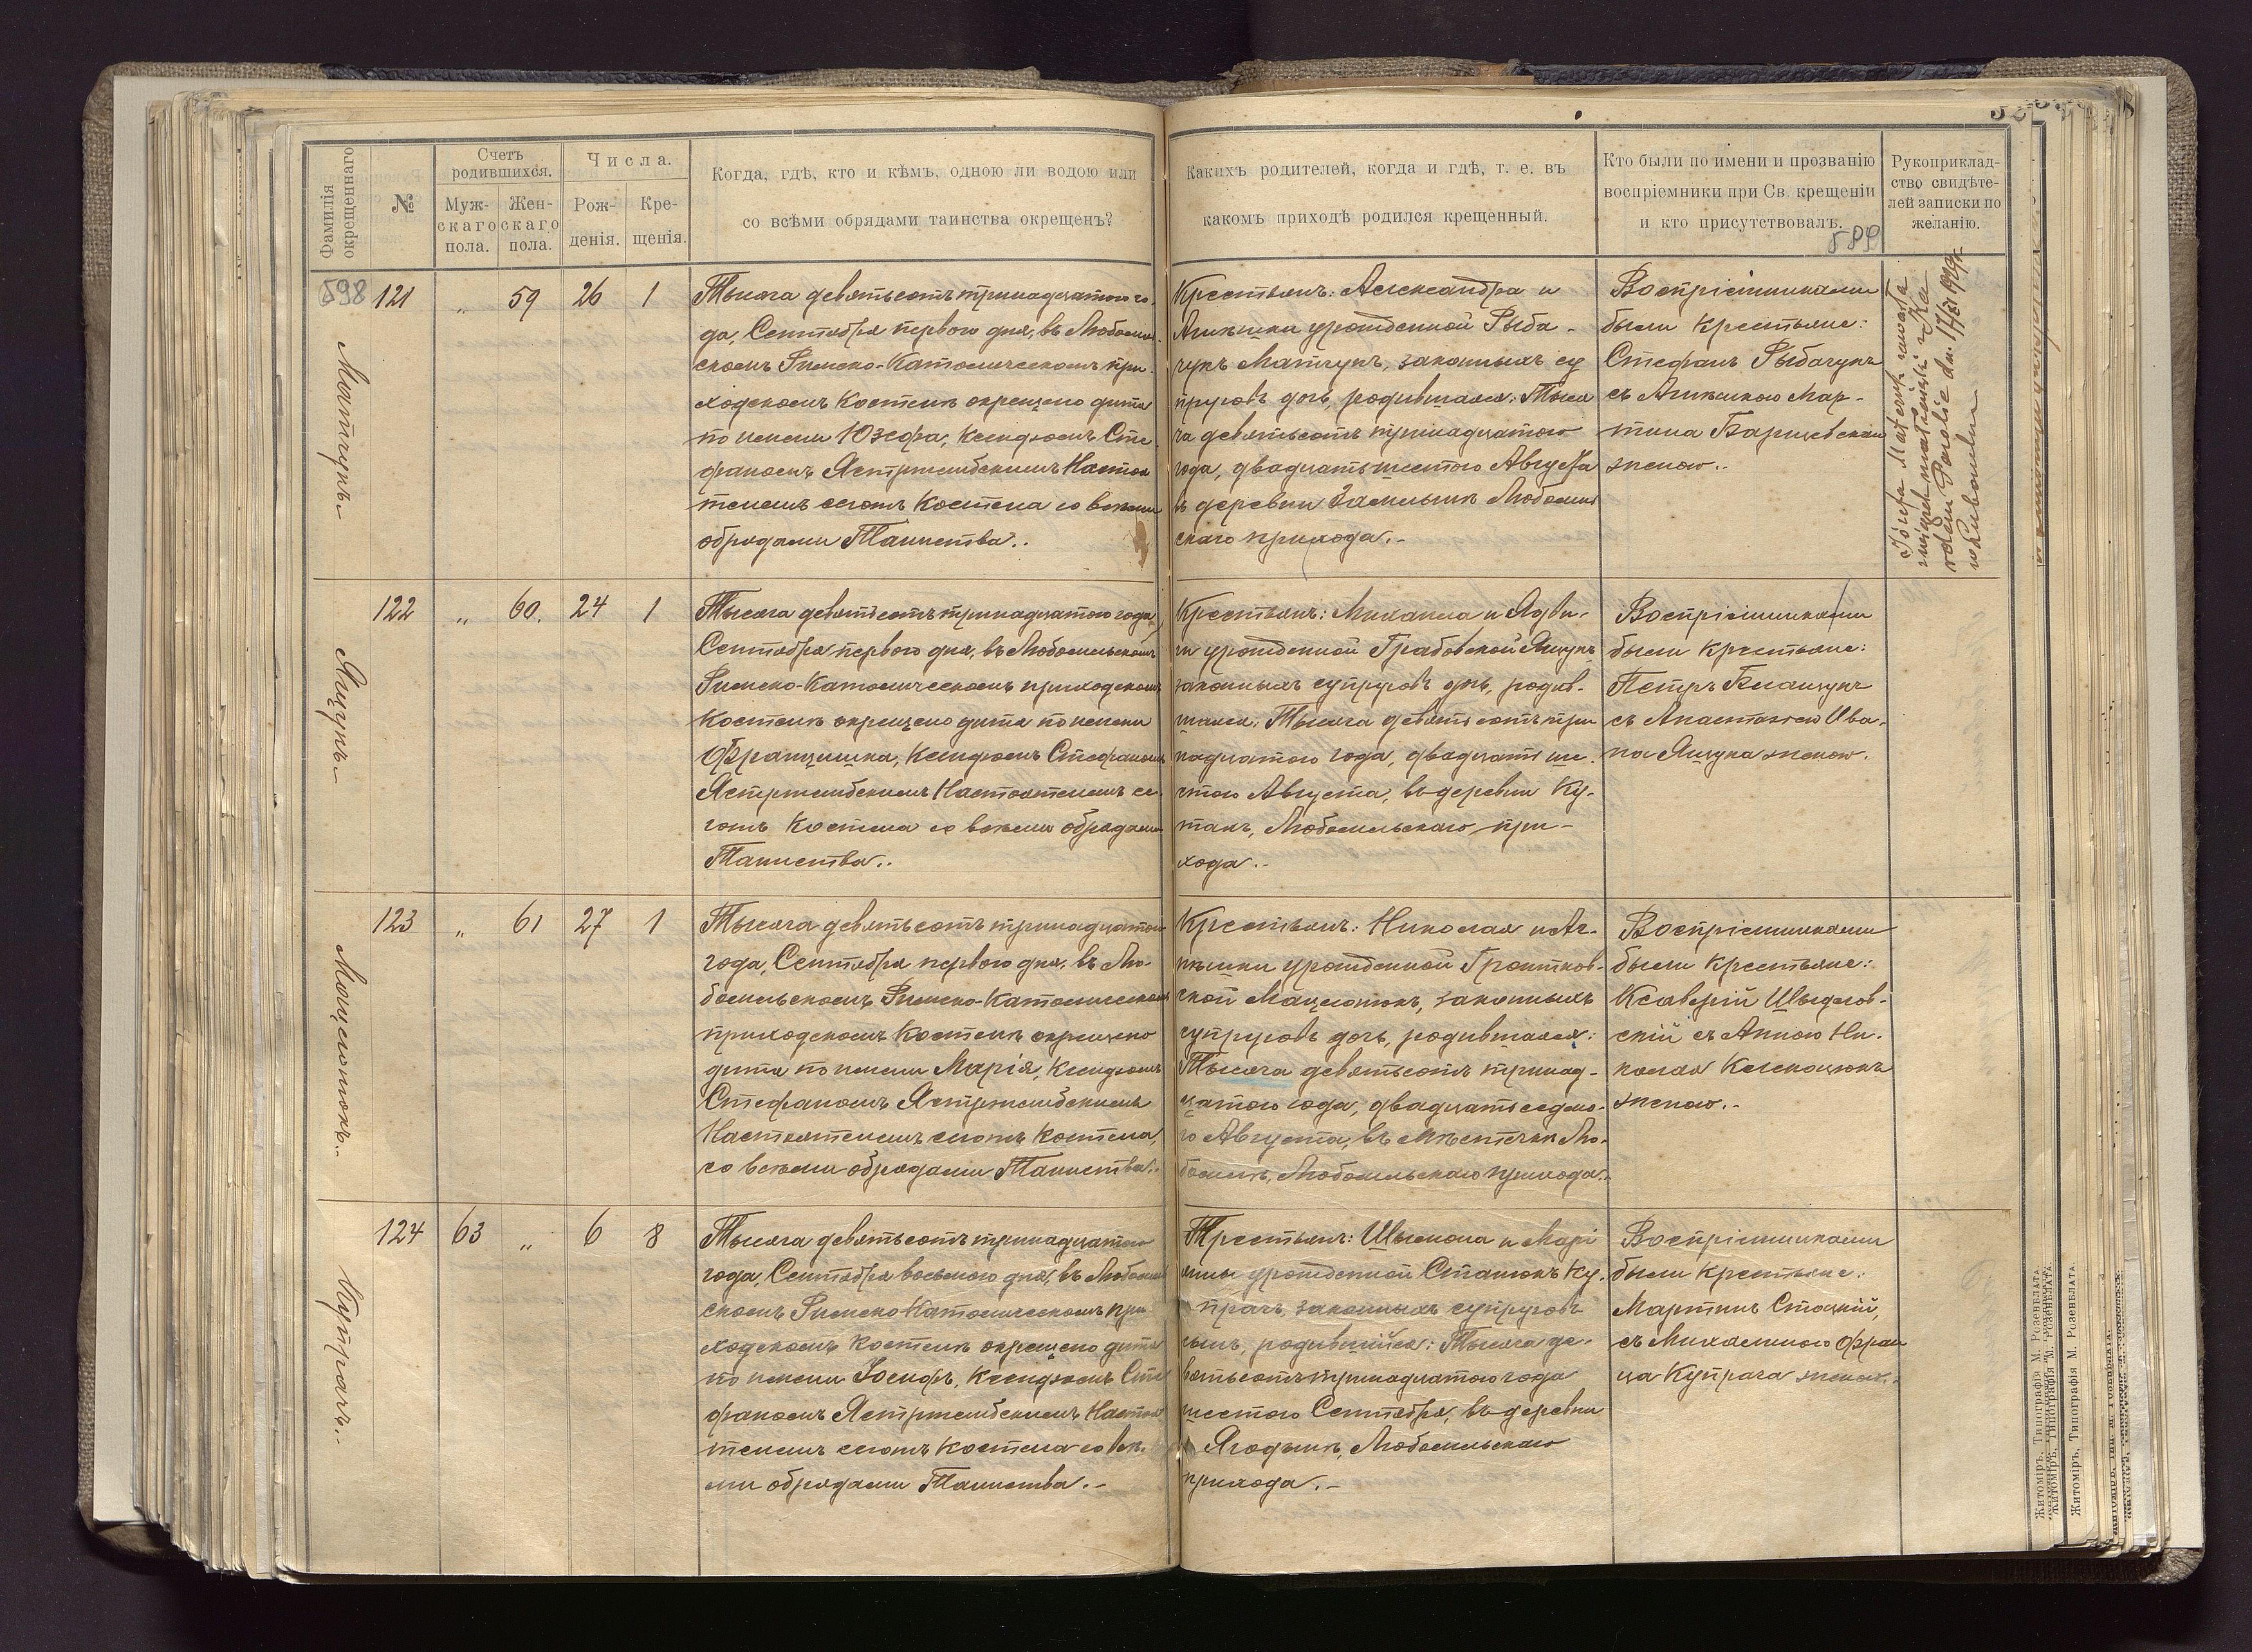 Фамилія окрещеннаго
№
Счетъ родившихся.
Муж-
скаго
пола.
Жен-
скаго
пола.
Числа.
Рож-
денія.
Кре-
щенія.
Когда, гдѣ, кто и кѣмъ, одною ли водою или
со всѣми обрядами таинства окрещенъ?
Какихъ родителей, когда и гдѣ, т. е. въ
какомъ приходѣ родился крещенный.
Кто были по имени и прозванію
воспріемники при Св. крещеніи
и кто присутствовалъ.
Рукоприклад-
ство свидѣте-
лей записки по
желанію.
589
598
Матчукъ
121 " 59 26 1
Тысяча девятьсотъ тринадцатого го-
да, Сентября первого дня, въ Любомль-
скомъ Римско-Католическомъ при-
ходскомъ Костелѣ окрещено дитя
по имени Юзефа, Ксендзомъ Сте-
фаномъ Ястржембскимъ Настоя
телемъ сегожъ Костела со всѣми
обрядами Таинства..
Крестьянъ: Александра и
Агнѣшки урожденной Рыба-
чукъ Матчукъ, законныхъ су
пруговъ дочь, родившаяся: Тыся
ча девятьсотъ тринадцатого
года, двадцать шестого Августа
въ деревни Замлынѣ Любомль
скаго прихода.-
Воспріемниками
были Крестьяне:
Стефанъ Рыбачукъ
съ Агнѣшкою Мар-
тина Барщевскаго
женою..
Яцукъ
122 " 60. 24 1
Тысяча девятьсотъ тринадцатого года,
Сентября первого дня, въ Любомльскомъ
Римско-Католическомъ приходскомъ
Костелѣ окрещено дитя по имени
Францишка, Ксендзомъ Стефаномъ
Ястржембскимъ Настоятелемъ се-
гожъ Костела со всѣми обрядами
Таинства..
Крестьянъ: Михаила и Ядви-
ги урожденной Грабовской Яцукъ
законныхъ супруговъ дочь, родив-
шаяся: Тысяча девятьсотъ три
надцатого года, двадцать ше-
стого Августа, въ деревни Ку-
такъ, Любомльскаго при-
хода.-
Воспріемниками
были Крестьяне:
Петръ
съ Анастазіею Ива-
на Яцука женою.
Мацелюхъ
123 " 61 27 1
Тысяча девятьсотъ тринадцатого
года, Сентября первого дня, въ Лю-
бомльскомъ Римско-Католическомъ
приходскомъ Костелѣ окрещено
дитя по имени Марія, Ксендзомъ
Стефаномъ Ястржембскимъ
Настоятелемъ сегожъ Костела,
со всѣми обрядами Таинства..
Крестьянъ: Николая и Аг-
нѣшки урожденной
законныхъ
супруговъ дочь, родившаяся:
Тысяча девятьсотъ тринад-
цатого года, двадцать седмо-
го Августа, въ мѣстечкѣ Лю-
бомлѣ, Любомльскаго прихода..
Воспріемниками
были Крестьяне:
Ксаверій
съ Анною Ни-
колая
женою.-
Купрачъ
124 63 " 6 8
Тысяча девятьсотъ тринадцатого
года, Сентября восьмого дня, въ Любомль
скомъ Римско Католическомъ при-
ходскомъ Костелѣ окрещено дитя
по имени Іосифъ, Ксендзомъ Сте
фаномъ Ястржембскимъ Настоя
телемъ сегожъ Костела со всѣ-
ми обрядами Таинства.-
Крестьянъ: Шымона и Марі
янны урожденной Стацюкъ Ку-
прачъ, законныхъ супруговъ
сынъ, родившійся: Тысяча де-
вятьсотъ тринадцатого года
шестого Сентября, въ деревни
Ягодынѣ, Любомльскаго
прихода.-
Воспріемниками
были Крестьяне:
Мартинъ Стоцкій,
съ Михалиною Фран
ца Купрача женою..
Житоміръ, Типографія М. Розенблата.